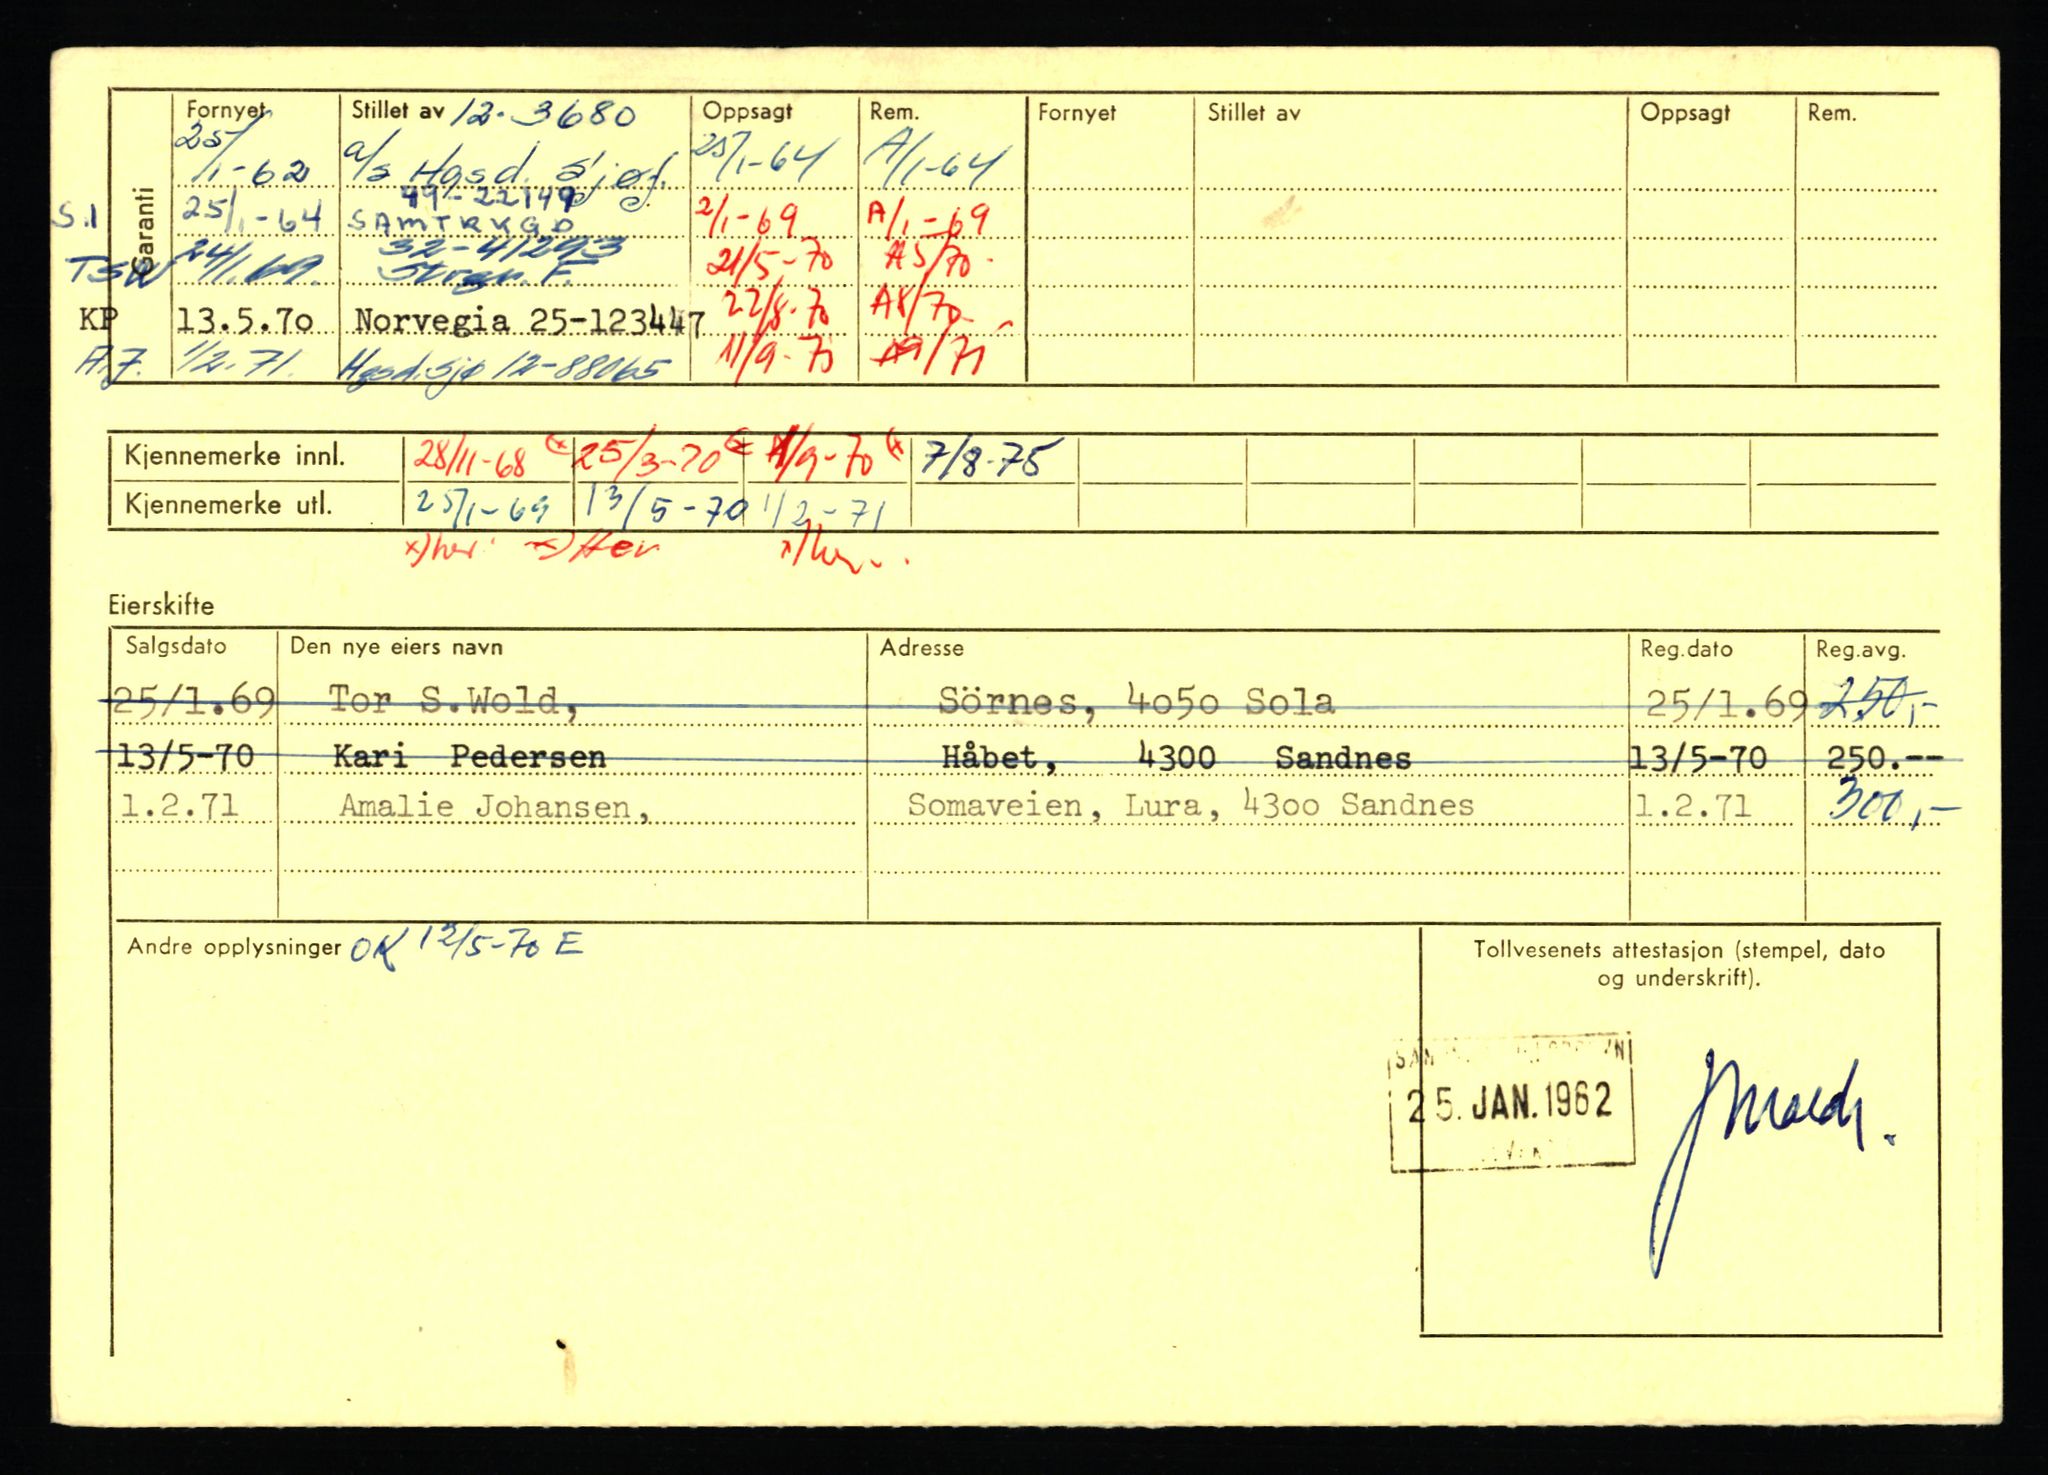 Garanti Fornyet Stillet av 12-3680 Oppsagt Rem. Fornyet Stillet av Oppsagt Rem.
25/1-62 a/s Hgsd. Sjøf. 25/1-64 A/1-64
S.I 25/1-64 49-22149 SAMTRYGD 2/1-69 A/1-69
TSW 24/1.69. 32-41293 21/5-70 A5/70.
KP 13.5.7o Norvegia 25-123447 22/8-70 A8/70
A.J. 1/2.71. Hgsd.sjø 12-88065 11/9-70 /71
Kjennemerke innl. 28/11-68 (x 25/3-70 (x /9-70 (x 7/8-75
Kjennemerke utl. 25/1-69 13/5-70 1/2-71
x) her x) Her x) her
Eierskifte
Salgsdato Den nye eiers navn Adresse Reg.dato Reg.avg.
25/1.69 Tor S.Wold, Sörnes, 4o5o Sola 25/1.69 250,-
13/5-70 Kari Pedersen Håbet, 4300 Sandnes 13/5-70 250.--
1.2.71 Amalie Johansen, Somaveien, Lura, 43oo Sandnes 1.2.71 300,-
Andre opplysninger OK 12/5-70 E
Tollvesenets attestasjon (stempel, dato
og underskrift).
25. JAN. 1962